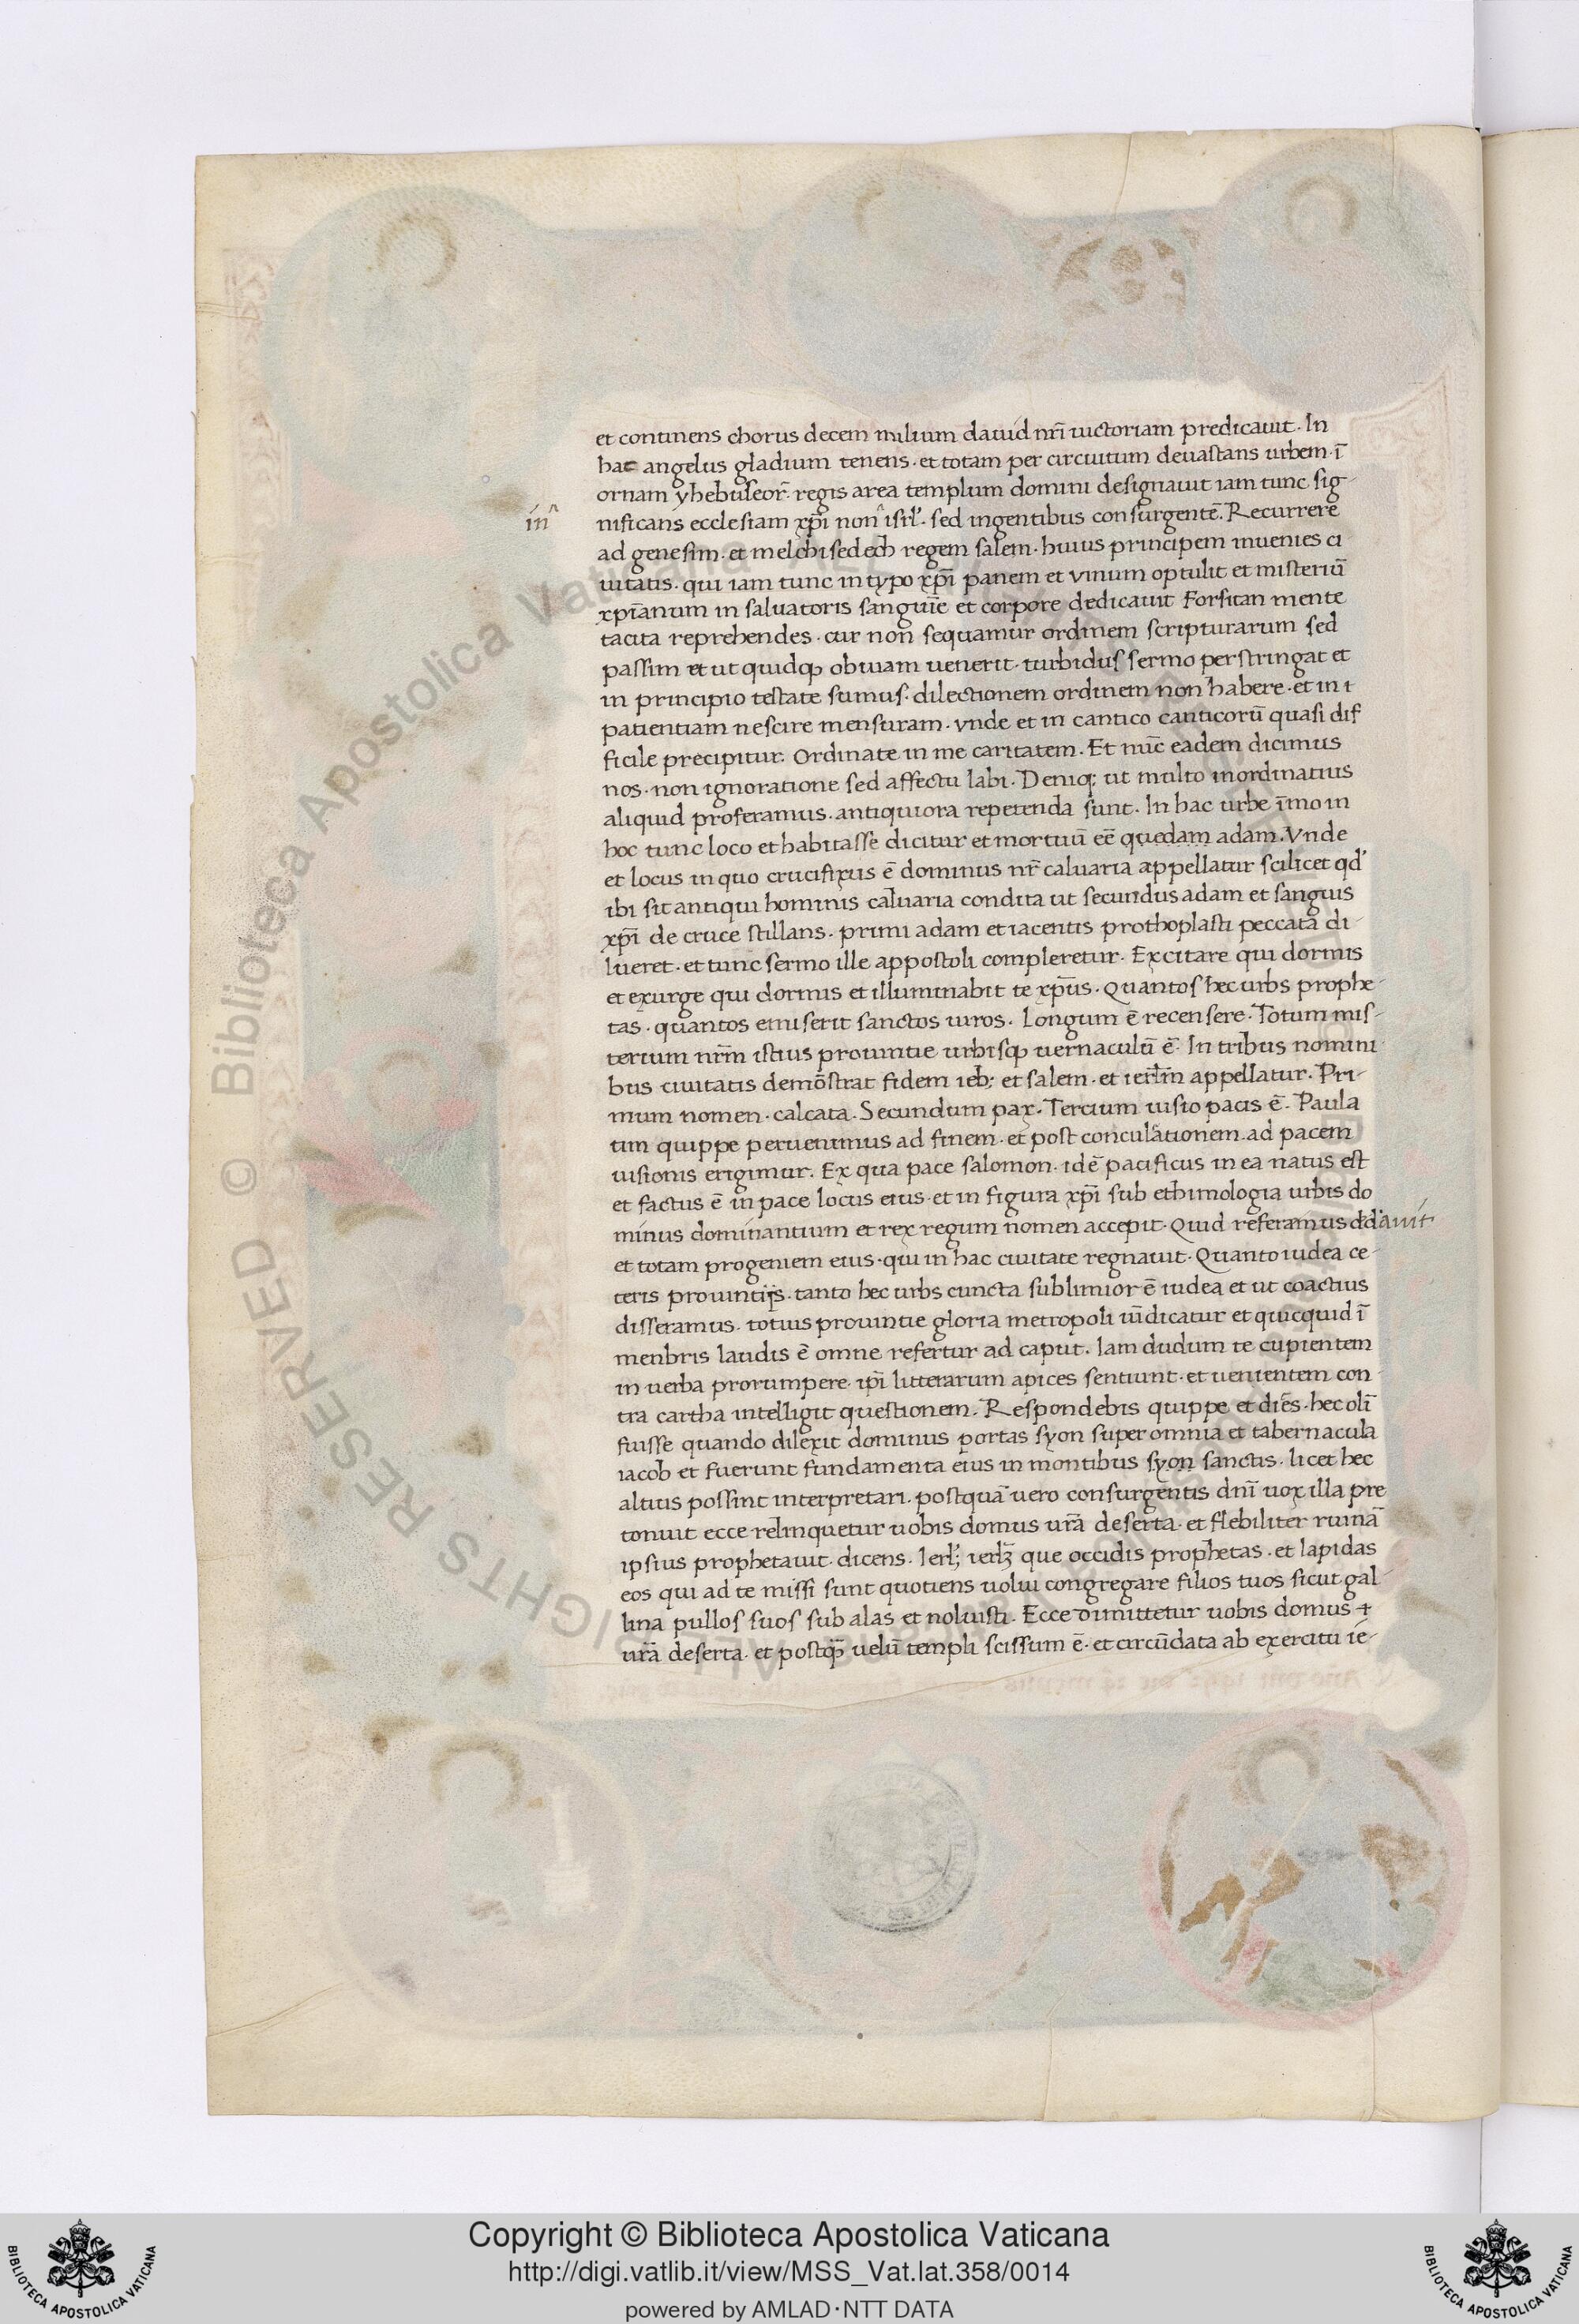 et continens chorus decem milium dauid nrī uictoriam predicauit. In
hac angelus gladium tenens. et totam per circuitum deuastans urbem. ī
ornam yhebuseor̄. regis area templum domini designauit iam tunc sig-
inˆ
nificans ecclesiam xp̄i nonˆ isrl̄. sed ingentibus consurgentē. Recurrere
ad genesim. et melchisedech regem salem. huius principem inuenies ci
uitatis. qui iam tunc in typo xp̄i panem et vinum optulit et misteriū
xp̄ianum in saluatoris sanguīe et corpore dedicauit Forsitan mente
tacita reprehendes. cur non sequamur ordinem scripturarum sed
passim et ut quidqꝫ obuiam uenerit. turbidus sermo perstringat et
in principio testate sumus. dilectionem ordinem non habere. et in i
patientiam nescire mensuram. vnde et in cantico canticorū quasi dif
ficile precipitur. Ordinate in me caritatem. Et nūc eadem dicimus
nos. non ignoratione sed affectu labi. Deniqꝫ ut multo inordinatius
aliquid proferamus. antiquiora repetenda sunt. In hac urbe īmo in
hoc tunc loco et habitasse dicitur et mortuū eē quedam adam. Vnde
et locus in quo crucifixus ē dominus nr̄ caluaria appellatur scilicet qd'
ibi sit antiqui hominis caluaria condita ut secundus adam et sanguis
xp̄i de cruce stillans. primi adam et iacentis prothoplasti peccata di-
lueret. et tunc sermo ille appostoli compleretur. Excitare qui dormis
et exurge qui dormis et illuminabit te xp̄us. Quantos hec urbs prophe-
tas. quantos emiserit sanctos uiros. Longum ē recensere. Totum mis-
terium nrm̄ istius prouintie urbisqꝫ uernaculū ē. In tribus nomini
bus ciuitatis demōstrat fidem ieb; et salem. et ierlm̄ appellatur. Pri-
mum nomen. calcata. Secundum pax. Tercium uisio pacis ē. Paula
tim quippe peruenimus ad finem. et post conculationem ad pacem
uisionis erigimur. Ex qua pace salomon. idē pacificus in ea natus est
et factus ē in pace locus eius. et in figura xp̄i sub ethimologia urbis do
minus dominantium et rex regum nomen accepit. Quid referamus dd' auit
et totam progeniem eius. qui in hac ciuitate regnauit. Quanto iudea ce-
teris prouintijs. tanto hec urbs cuncta sublimior ē iudea et ut coactius
disseramus. totius prouintie gloria metropoli uīdicatur et quicquid ī
menbris laudis ē omne refertur ad caput. Iam dudum te cupientem
in uerba prorumpere. ip̄i litterarum apices sentiunt. et uenientem con-
tra cartha intelligit questionem. Respondebis quippe et dies. hec olī
fuisse quando dilexit dominus portas syon super omnia et tabernacula
iacob et fuerunt fundamenta eius in montibus syon sanctis. licet hec
altius possint interpretari. postquā uero consurgentis dnī uox illa pre
tonuit ecce relinquetur uobis domus urā deserta. et flebiliter ruinā
ipsius prophetauit. dicens. Ierl'; ierlꝫ que occidis prophetas. et lapidas
eos qui ad te missi sunt quotiens uolui congregare filios tuos sicut gal-
lina pullos suos sub alas et noluisti. Ecce dimittetur uobis domus +
urā deserta. et postqꝫ̄ uelū templi scissum ē. et circūdata ab exercitu ie-
Copyright © Biblioteca Apostolica Vaticana
http://digi.vatlib.it/view/MSS_Vat.lat.358/0014
powered by AMLAD·NTT DATA